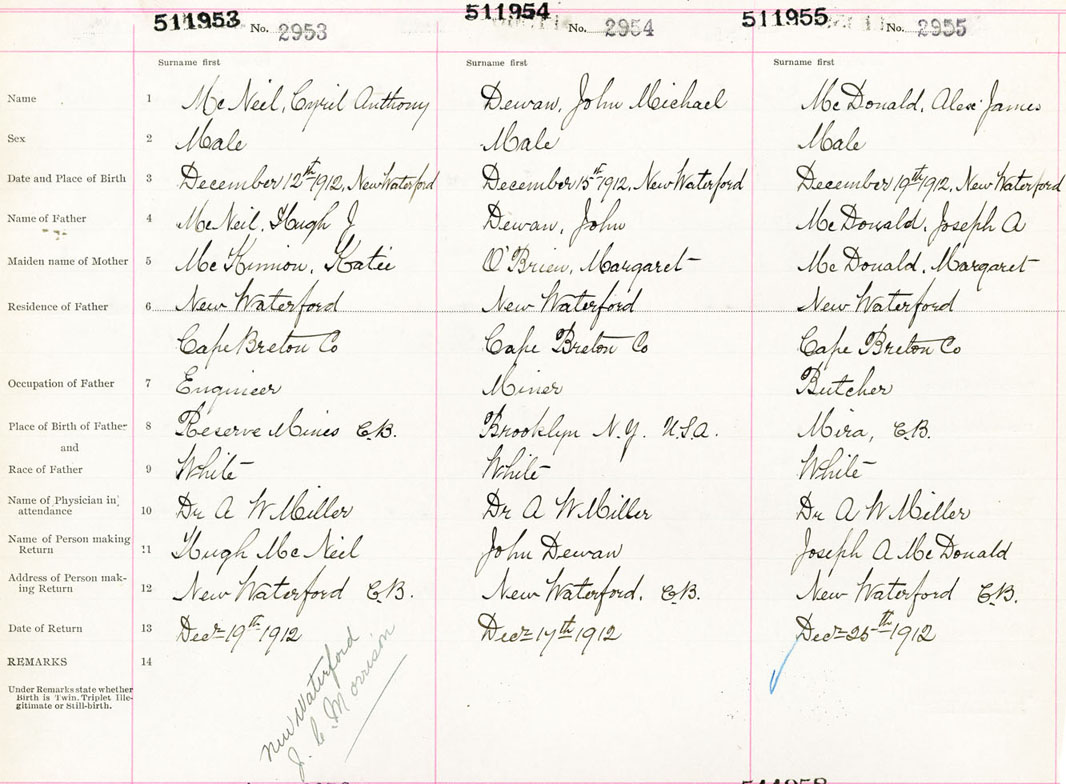 511953 No. 2953 511954 No. 2954 511955 No. 2955
Surname first Surname first Surname first
Name 1 McNeil, Cyril Anthony Dewan, John Michael McDonald, Alex James
Sex 2 Male Male Male
Date and Place of Birth 3 December 12th 1912, New Waterford December 15th 1912, New Waterford December 19th 1912, New Waterford
Name of Father 4 McNeil, Hugh J Dewan, John McDonald, Joseph A
Maiden name of Mother 5 McKinnon, Katie O'Brien, Margaret McDonald, Margaret
Residence of Father 6 New Waterford New Waterford New Waterford
Cape Breton Co Cape Breton Co Cape Breton Co
Occupation of Father 7 Engineer Miner Butcher
Place of Birth of Father 8 Reserve Mines C.B. Brooklyn N.Y. U.S.A. Mira, C.B.
and
Race of Father 9 White White White
Name of Physician in
attendance 10 Dr A W Miller Dr A W Miller Dr A W Miller
Name of Person making
Return 11 Hugh McNeil John Dewan Joseph A McDonald
Address of Person mak-
ing Return 12 New Waterford C.B. New Waterford, C.B. New Waterford C.B.
Date of Return 13 Decr 19th 1912 Decr 17th 1912 Decr 25th 1912
REMARKS 14
Under Remarks state whether
Birth is Twin, Triplet Ille-
gitimate or Still-birth.
New Waterford
J. C Morrison